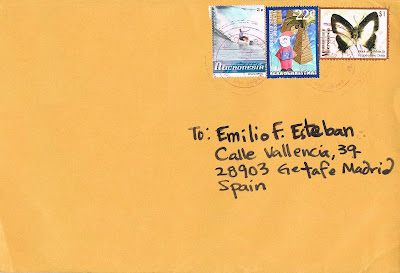 MICRONESIA
$1
To: Emilio F. Esteban
Calle Vallencia, 39
28903 Getafe Madrid
Spain